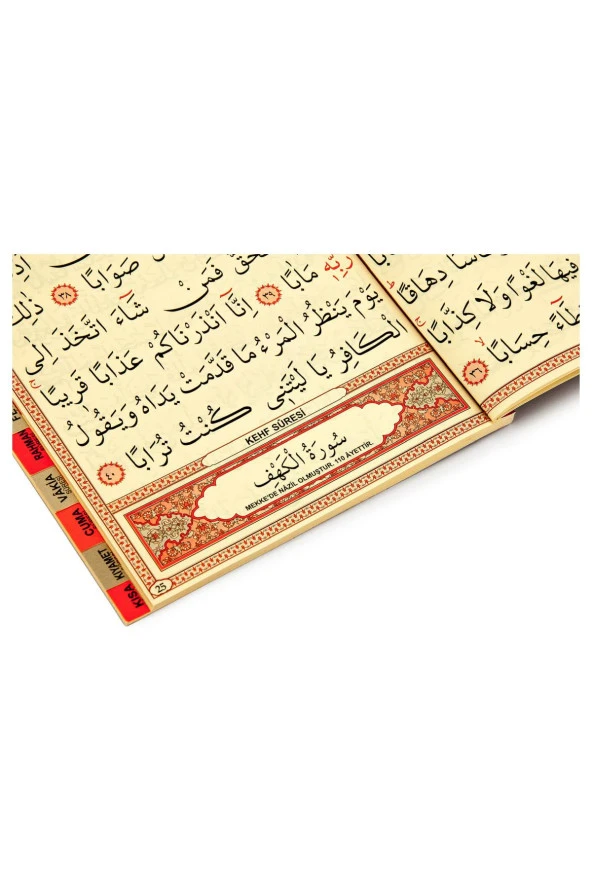 صَوَابًا ﴿٣٨﴾ ذٰلِكَ
فَمَنْ شَٓاءَ اتَّخَذَ اِلٰى
رَبِّه۪ مَاٰبًا ﴿٣٩﴾ اِنَّٓا اَنْذَرْنَاكُمْ عَذَابًا قَر۪يبًا
يَوْمَ يَنْظُرُ الْمَرْءُ مَا قَدَّمَتْ يَدَاهُ وَيَقُولُ
الْكَافِرُ يَا لَيْتَن۪ى كُنْتُ تُرَابًا ﴿٤٠﴾
KEHF SÛRESİ
سُورَةُ الْكَهْفِ
MEKKE'DE NÂZİL OLMUŞTUR. 110 ÂYETTİR.
25
دِهَاقًا
ف۪يهَا لَغْوًا وَلَا كِذَّابًا
حِسَابًا ﴿٣٦﴾
RAHMAN
VÂKIA
SÛRESİ
CUMA
KIYAMET
KISA